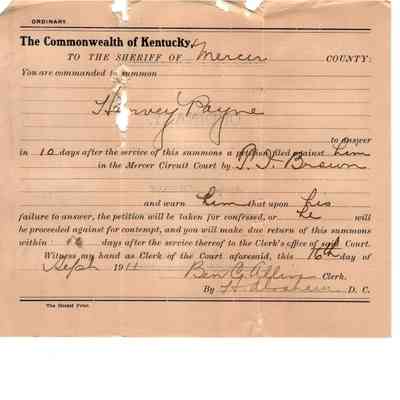 ORDINARY.
The Commonwealth of Kentucky,
TO THE SHERIFF OF Mercer COUNTY:
You are commanded to summon
Harvey Payne
to answer
in 10 days after the service of this summons a petition filed against him
in the Mercer Circuit Court by Brown
and warn him that upon his
failure to answer, the petition will be taken for confessed, or he will
be proceeded against for contempt, and you will make due return of this summons
within days after the service thereof to the Clerk's office of said Court.
Witness my hand as Clerk of the Court aforesaid, this 16th day of
Sept 191 Ben C. Allin Clerk.
By D. C.